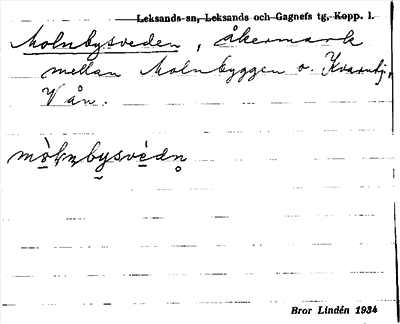 Leksands sn, Leksands och Gagnefs tg, Kopp. l.
Molnbysveden, åkermark
mellan Molnbyggen o. Kvarnbj.
V ån.
mòḷnbysvèdn̥
Bror Lindén 1934